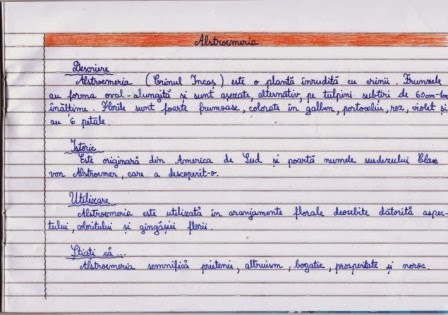 Alstroemeria
Descriere
Alstroemeria (Crinul Incaş) este o plantă înrudită cu crinii. Frunzele
au forma oval-alungită şi sunt aşezate, alternativ, pe tulpini subţiri de 60cm-1m
înălţime. Florile sunt foarte frumoase, colorate în galben, portocaliu, roz, violet şi
au 6 petale.
Istoric
Este originară din America de Sud şi poartă numele suedezului Klaes
von Alstroemer, care a descoperit-o.
Utilizare
Alstroemeria este utilizată în aranjamente florale deosebite datorită aspec-
tului, coloritului şi gingăşiei florii.
Ştiaţi că...
Alstroemeria semnifică prietenie, altruism, bogaţie, prosperitate şi noroc.